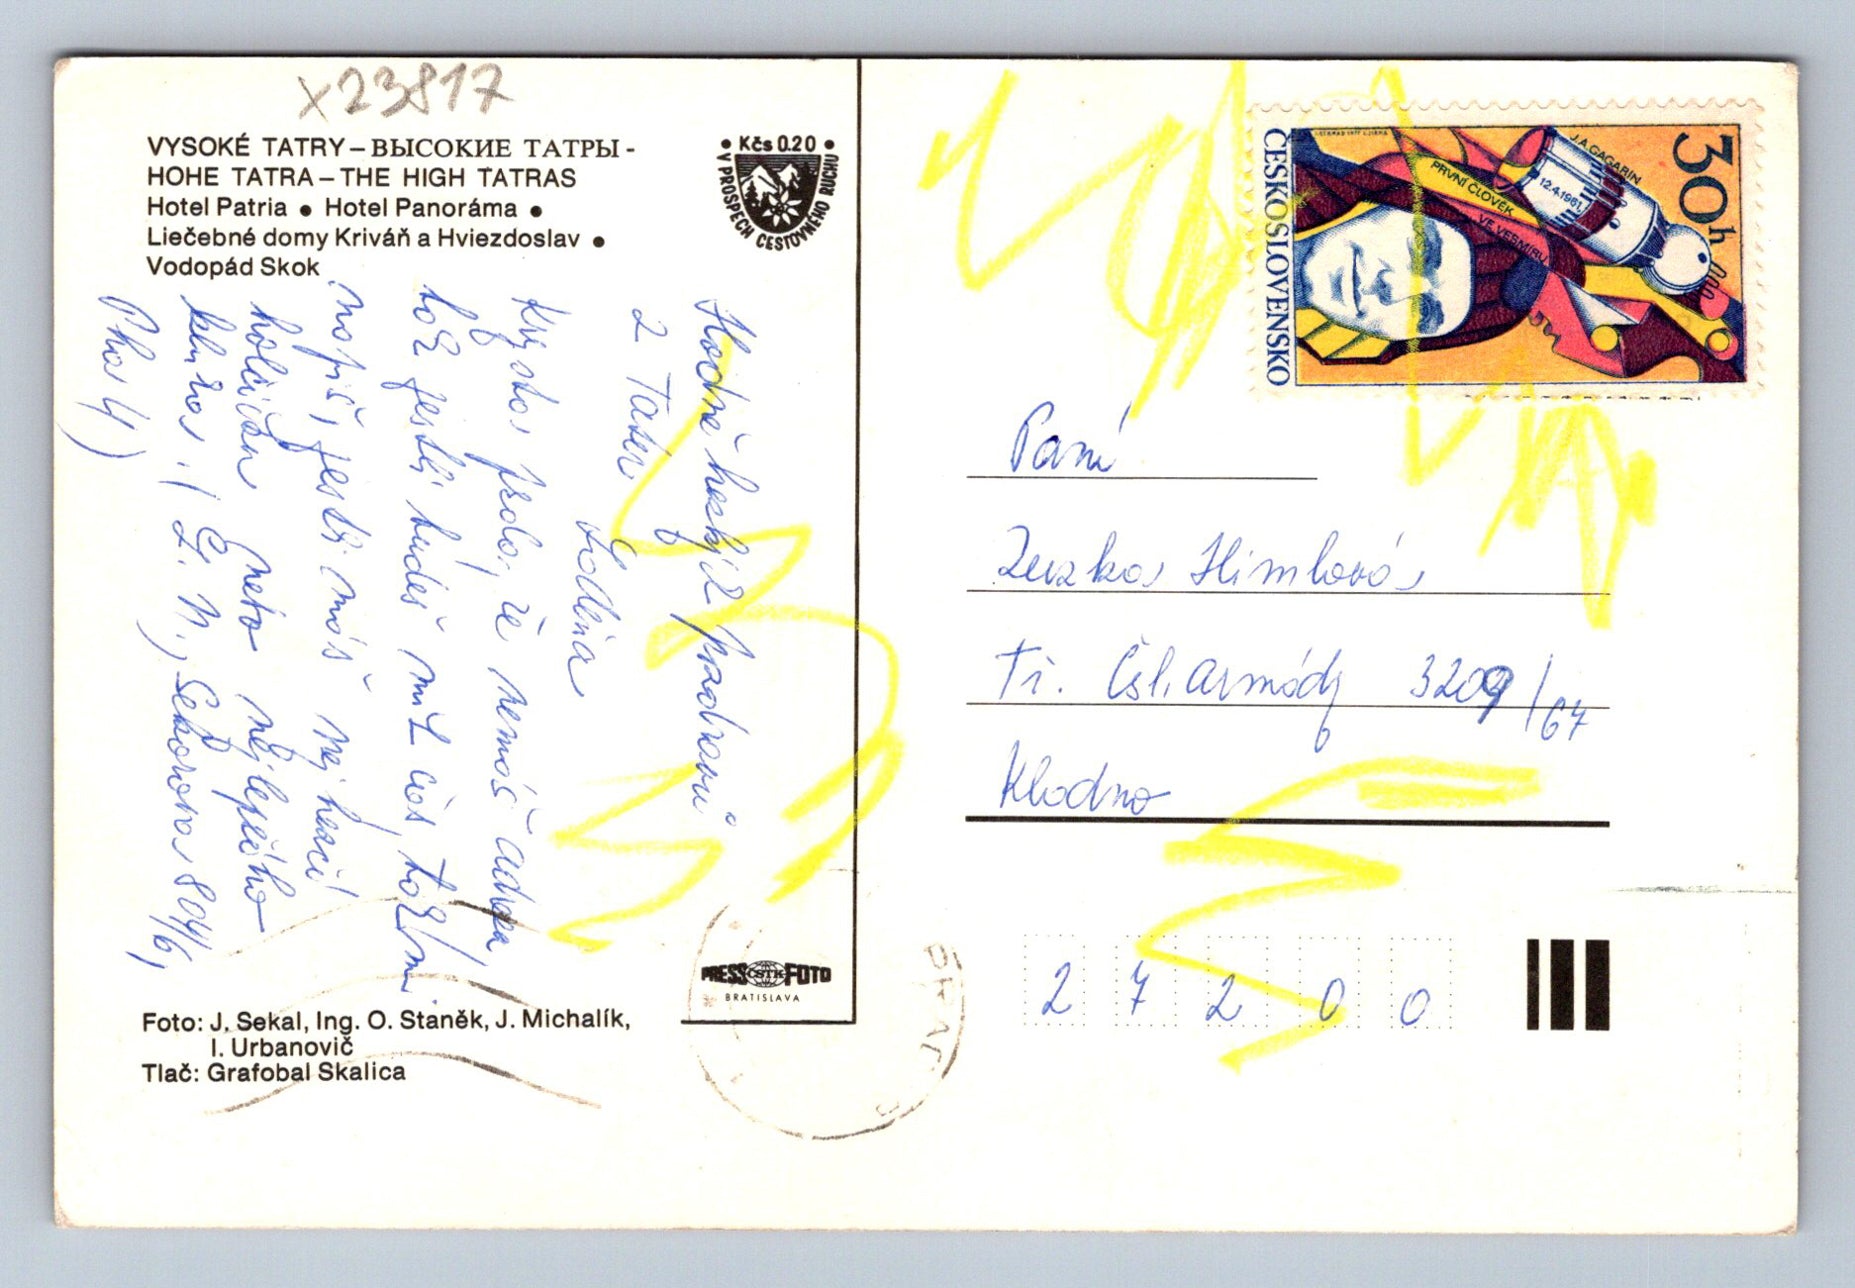 x23817
VYSOKÉ TATRY – ВЫСОКИЕ ТАТРЫ -
HOHE TATRA – THE HIGH TATRAS
Hotel Patria ● Hotel Panoráma ●
Liečebné domy Kriváň a Hviezdoslav ●
Vodopád Skok
• Kčs 0.20 •
V PROSPECH CESTOVNÉHO RUCHU
Hodně hezkých pozdravů
z Tater
Lodina
Kryska, že nemáš
jestli budeš mít čas
napiš, jestli máš nejhezčí
holčičku nebo nejlepšího
kluka. (L. N., Sekorova 804/6,
Pha 4)
Foto: J. Sekal, Ing. O. Staněk, J. Michalík,
I. Urbanovič
Tlač: Grafobal Skalica
PRESS ČSTK FOTO
BRATISLAVA
ČESKOSLOVENSKO
30h
J.A.GAGARIN
12.4.1961
PRVNÍ ČLOVĚK
VE VESMÍRU
Paní
Zuzka Himlová
Tř. Čsl. Armády 3209/67
Kladno
2 7 2 0 0